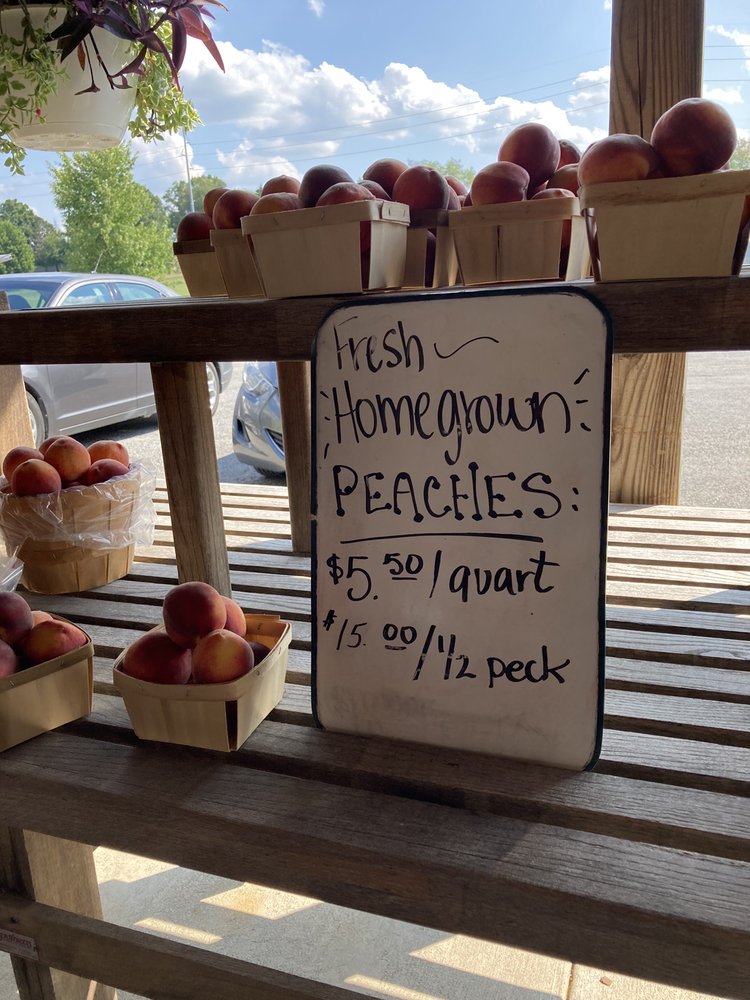 Fresh
Homegrown
PEACHES:
$5.50/quart
$15.00/1/2 peck